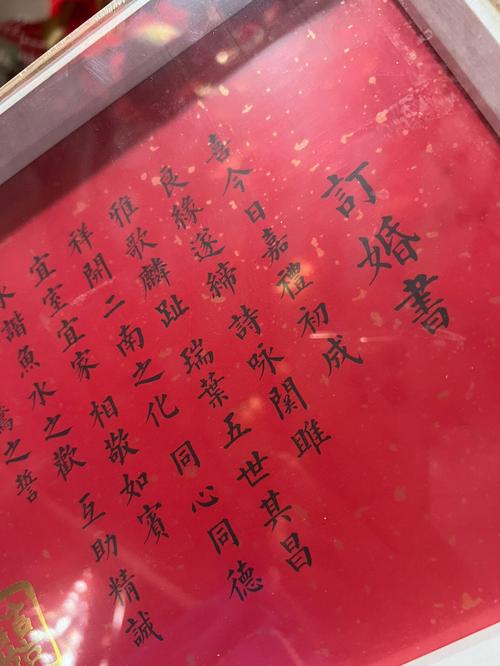 訂婚書
喜今日嘉禮初成
良緣遂締詩咏関雎
雅歌麟趾瑞葉五世其昌
祥開二南之化同心同德
宜室宜家相敬如賓
永諧魚水之歡互助精誠
之誓
囍